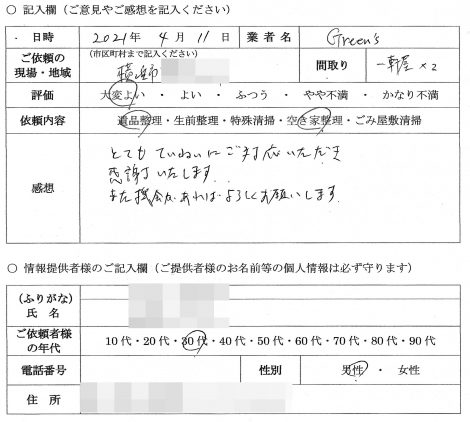 ○ 記入欄（ご意見やご感想を記入ください）
日時 2021年 4月 11日 業者名 Green's
ご依頼の現場・地域 (市区町村まで記入ください) 横浜市 間取り 一軒屋 × 2
評価 大変よい ・ よい ・ ふつう ・ やや不満 ・ かなり不満
依頼内容 遺品整理・生前整理・特殊清掃・空き家整理・ごみ屋敷清掃
感想
とてもていねいにご対応いただき
感謝いたします.
また機会があればよろしくお願いします.
○ 情報提供者様のご記入欄（ご提供者様のお名前等の個人情報は必ず守ります）
(ふりがな)
氏 名
ご依頼者様の年代 10代・20代・30代・40代・50代・60代・70代・80代・90代
電話番号 性別 男性 ・ 女性
住 所